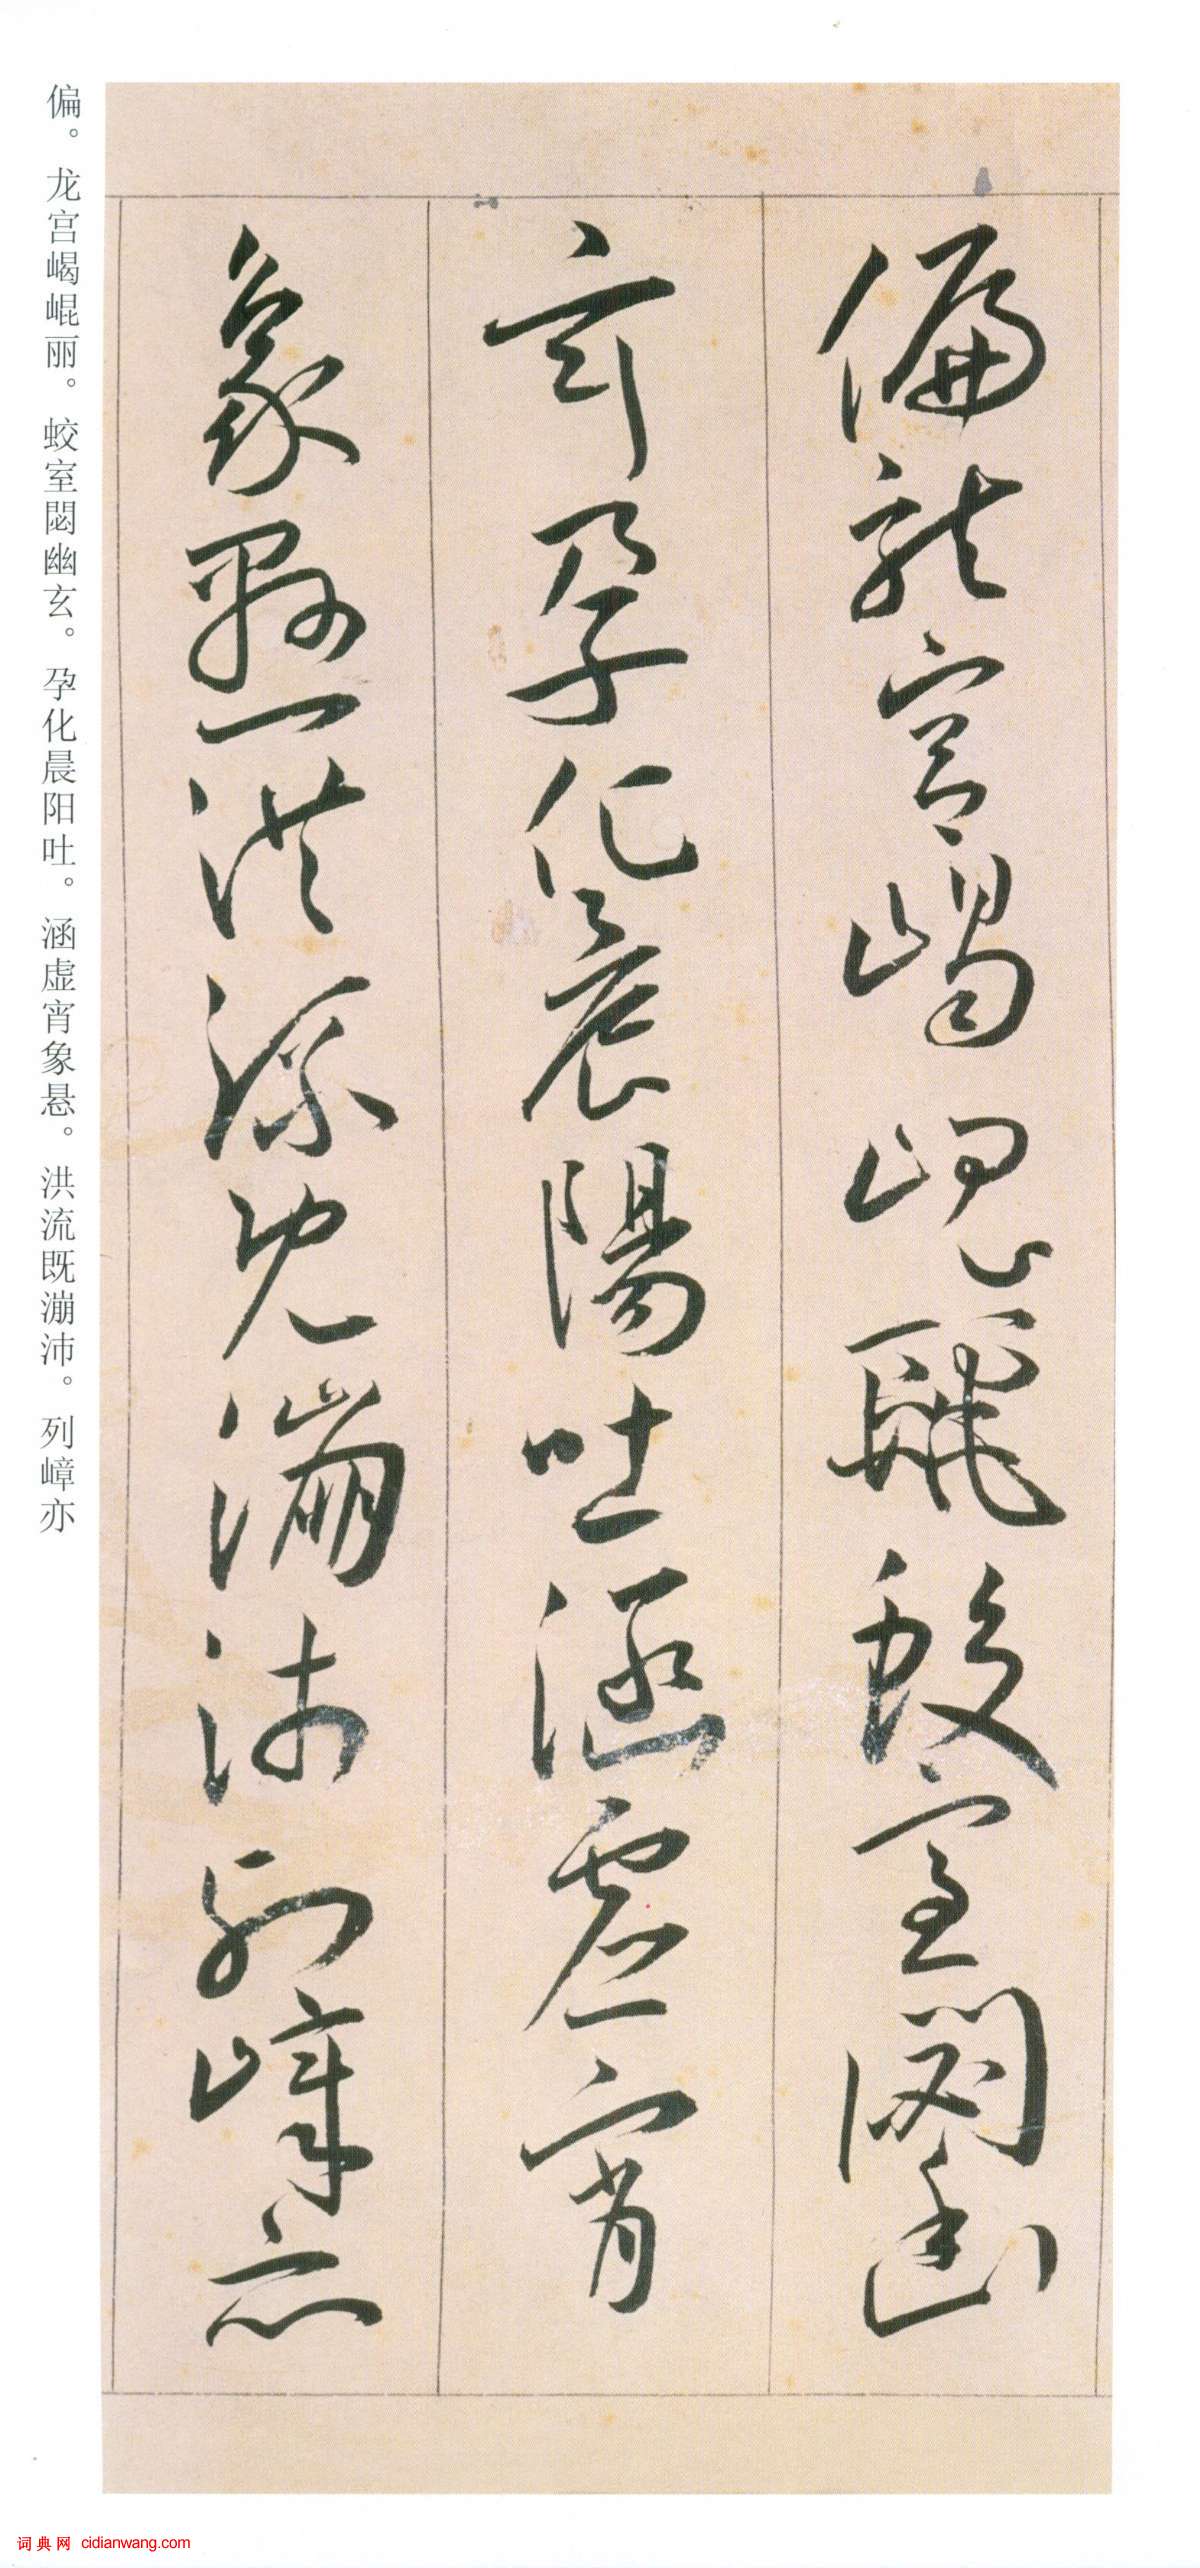 偏龍宮嵑崐麗蛟室閟幽
玄孕化晨陽吐涵虛宵
象懸洪流既漰沛列嶂亦
偏。龙宫嵑崐丽。蛟室閟幽玄。孕化晨阳吐。涵虚宵象悬。洪流既漰沛。列嶂亦
词典网 cidianwang.com